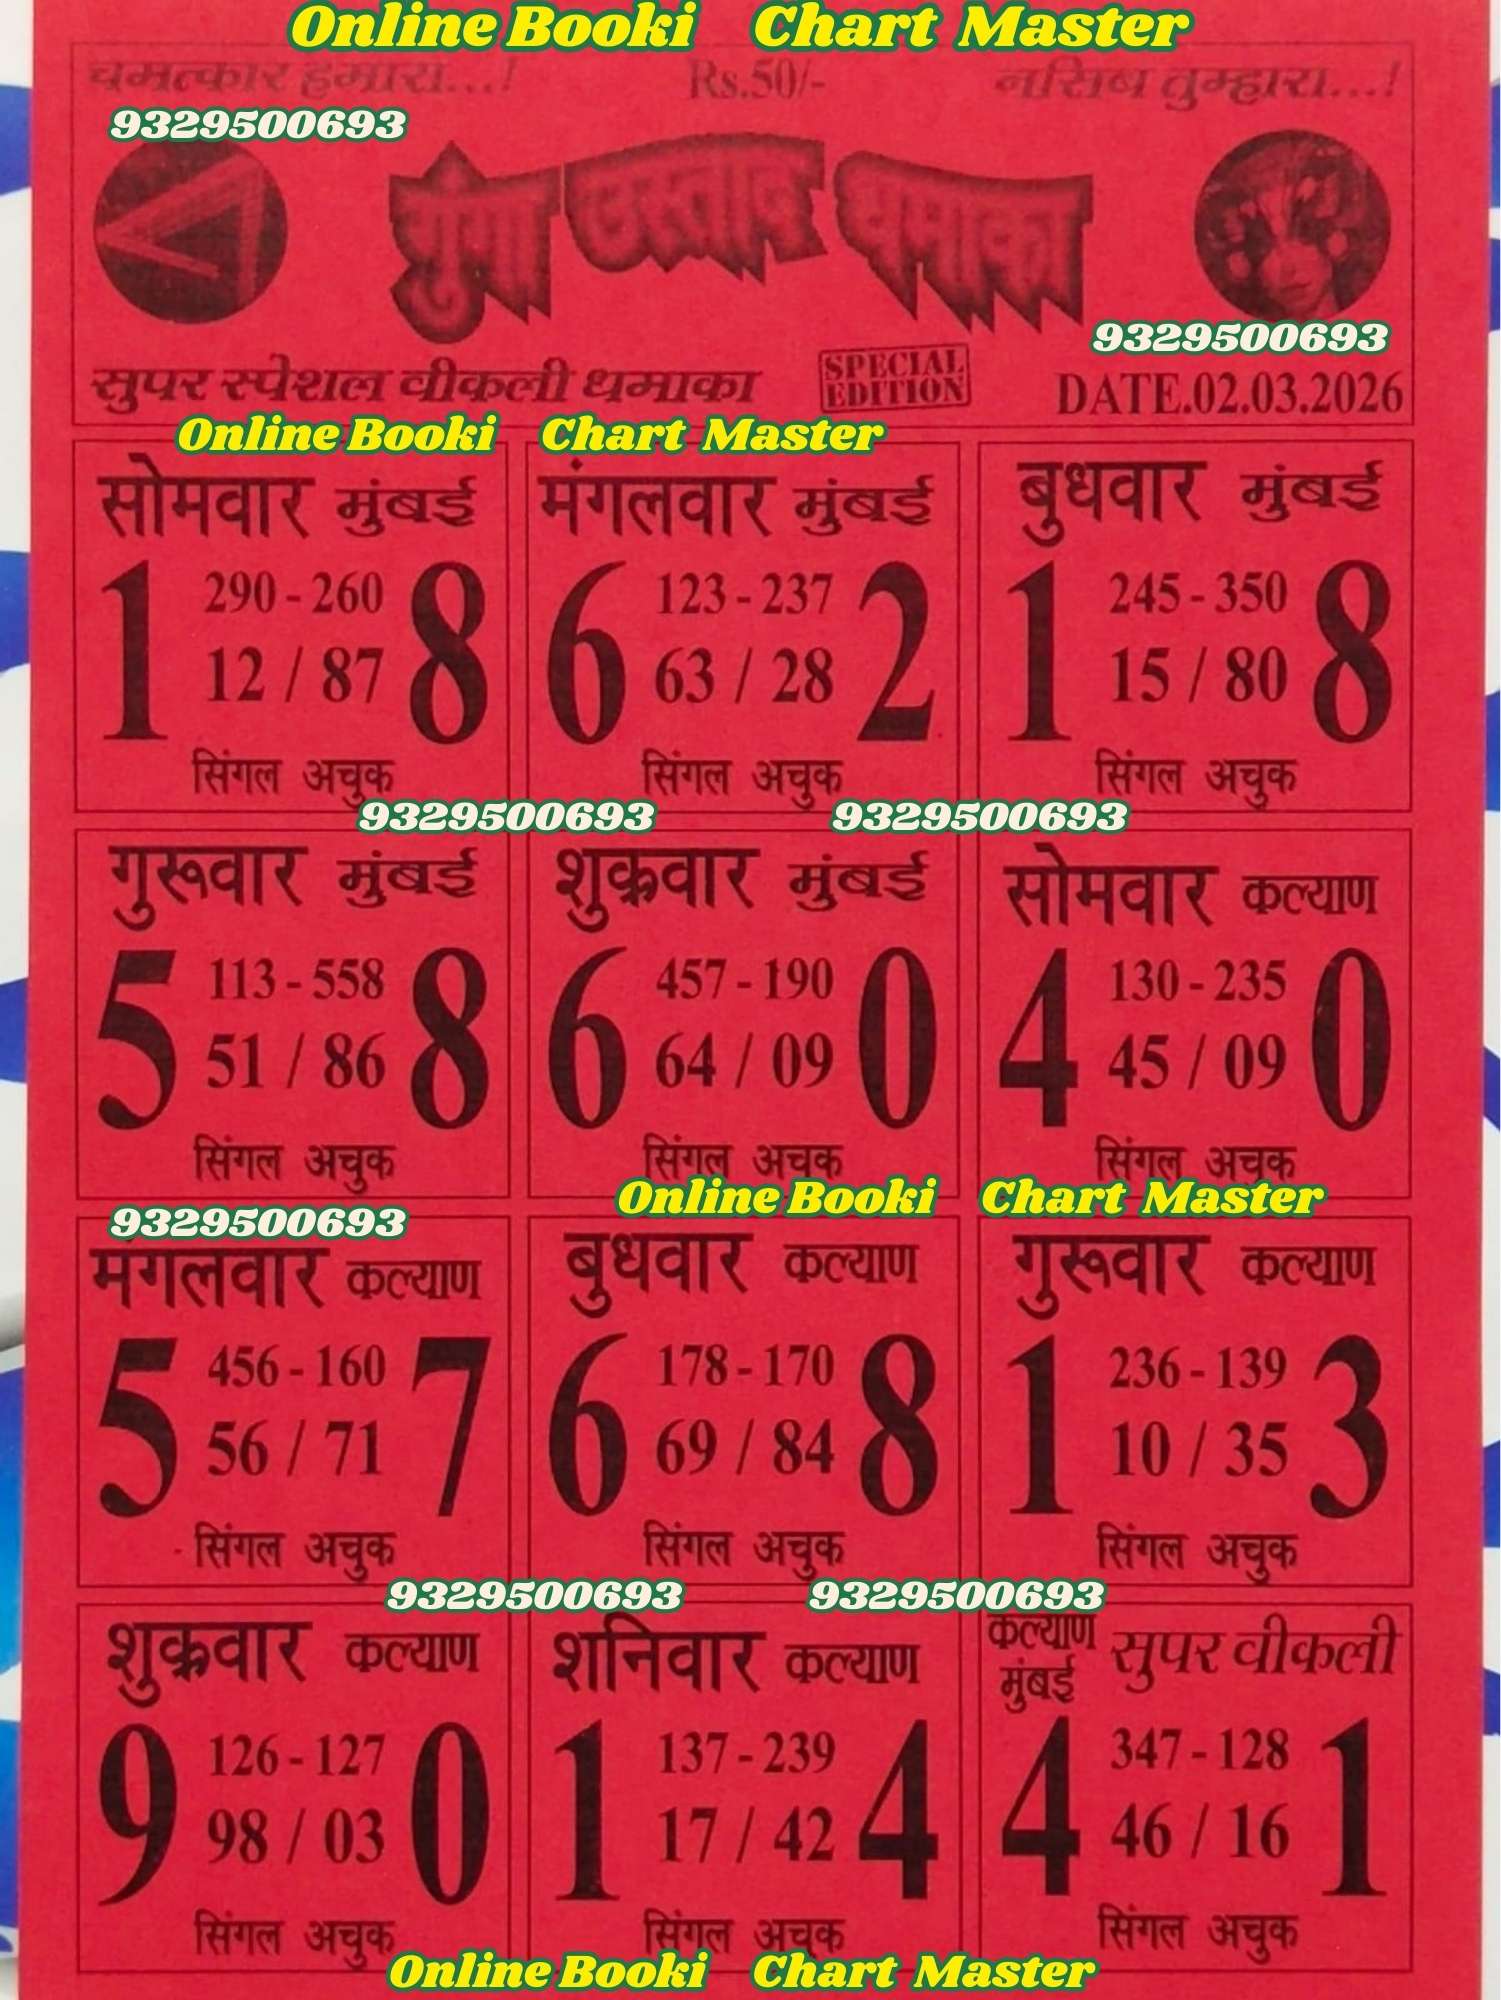 Online Booki Chart Master
चमत्कार हमारा...! Rs.50/- नसिब तुम्हारा...!
9329500693
गुंगा उस्ताद धमाका
9329500693
सुपर स्पेशल वीकली धमाका SPECIAL EDITION DATE.02.03.2026
Online Booki Chart Master
सोमवार मुंबई
1 290 - 260 8
12 / 87
सिंगल अचुक
मंगलवार मुंबई
6 123 - 237 2
63 / 28
सिंगल अचुक
बुधवार मुंबई
1 245 - 350 8
15 / 80
सिंगल अचुक
9329500693 9329500693
गुरूवार मुंबई
5 113 - 558 8
51 / 86
सिंगल अचुक
शुक्रवार मुंबई
6 457 - 190 0
64 / 09
सिंगल अचुक
सोमवार कल्याण
4 130 - 235 0
45 / 09
सिंगल अचुक
Online Booki Chart Master
9329500693
मंगलवार कल्याण
5 456 - 160 7
56 / 71
सिंगल अचुक
बुधवार कल्याण
6 178 - 170 8
69 / 84
सिंगल अचुक
गुरूवार कल्याण
1 236 - 139 3
10 / 35
सिंगल अचुक
9329500693 9329500693
शुक्रवार कल्याण
9 126 - 127 0
98 / 03
सिंगल अचुक
शनिवार कल्याण
1 137 - 239 4
17 / 42
सिंगल अचुक
कल्याण मुंबई सुपर वीकली
4 347 - 128 1
46 / 16
सिंगल अचुक
Online Booki Chart Master